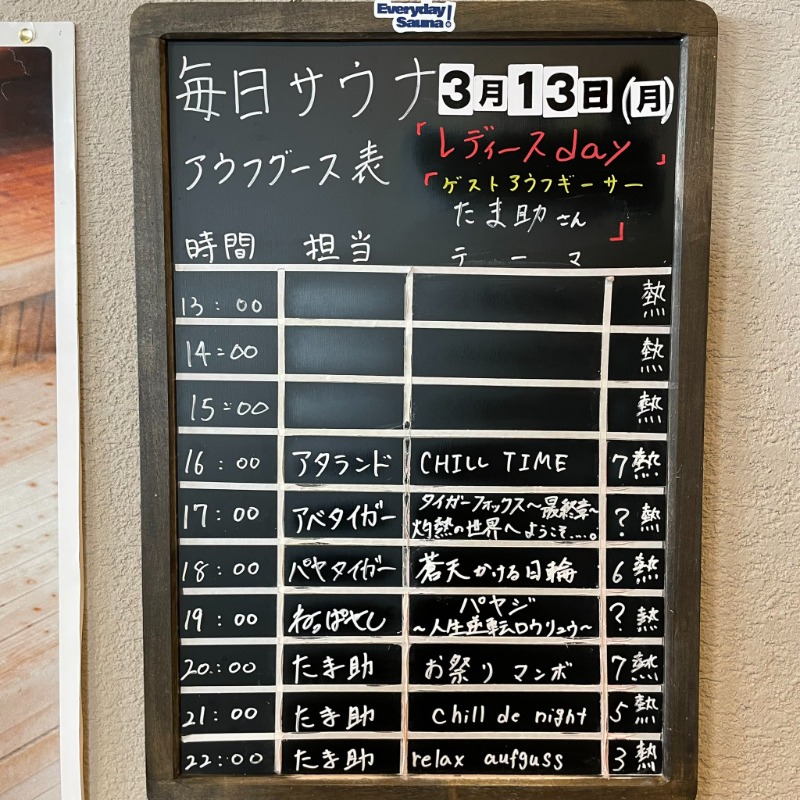 Everyday
Sauna!
毎日サウナ 3月13日(月)
アウフグース表 「レディースday」
「ゲストアウフギーサー
たま助さん」
時間 担当 テーマ
13:00 熱
14:00 熱
15:00 熱
16:00 アタランド CHILL TIME 7熱
17:00 アベタイガー タイガーフォックス〜最終章〜
灼熱の世界へようこそ....。 ?熱
18:00 パヤタイガー 蒼天かける日輪 6熱
19:00 ねっぱとし パヤジ
〜人生逆転ロウリュウ〜 ?熱
20:00 たま助 お祭りマンボ 7熱
21:00 たま助 chill de night 5熱
22:00 たま助 relax aufguss 3熱